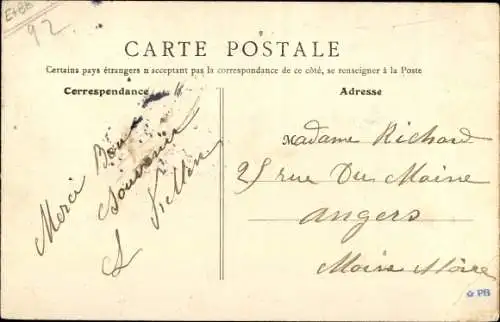 E+BB
92
CARTE POSTALE
Certains pays étrangers n acceptant pas la correspondance de ce côté, se renseigner à la Poste
Correspondance
Adresse
Merci Bon
Souvenir
Madame Richard
25 rue Du Maine
Angers
Maine Loire
PB